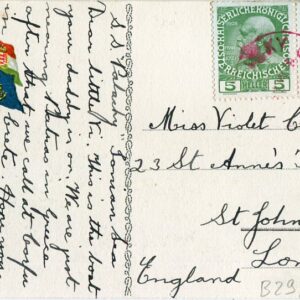 S.S. " Ionian Sea
Dear little Vi. This is the boat
your daddy is on. We are just
nearing Patras in Greece
after that we call at Corfu
KAISERLICHE KÖNIGLICHE
ÖSTERREICHISCHE
5 HELLER 5
Miss Violet C
23 St Anne's
St John
Lon
England
B29